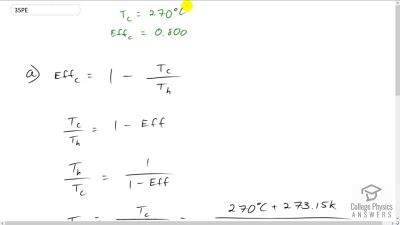 35PE
T_c = 270°C
Eff_c = 0.800
a) Eff_c = 1 - T_c / T_h
T_c / T_h = 1 - Eff
T_h / T_c = 1 / (1 - Eff)
T_c 270°C + 273.15K
= =
College Physics
ANSWERS